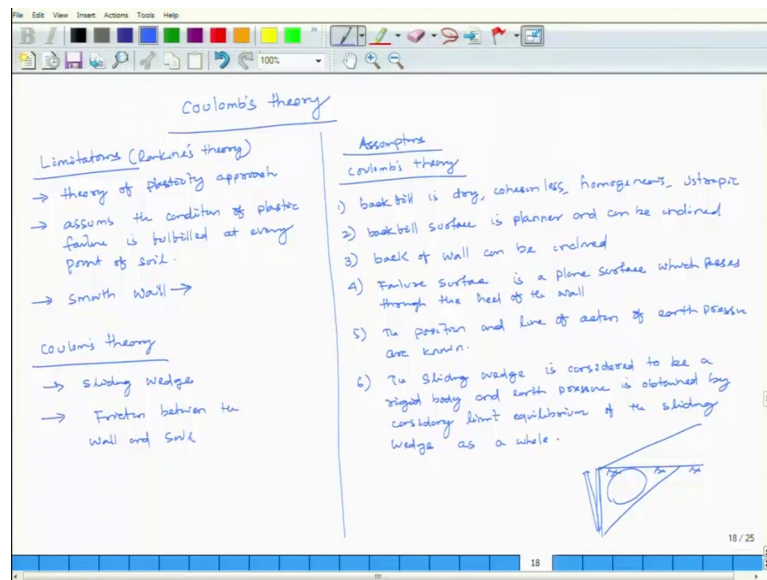 File Edit View Insert Actions Tools Help
B I
100%
Coulomb's theory
Limitatons (Rankine's theory)
→ theory of plasticity approach
→ assums the conditon of plastic
failure is fulfilled at every
point of soil.
→ Smooth wall →
Coulom's theory
→ Sliding wedge
→ Fricton between the
wall and soil
Assumptons
Coulomb's theory
1) backfill is dry, cohesionless, homogeneous, istropic
2) backfill surface is planner and can be inclined
3) back of wall can be inclined
4) Failure surface is a plane surface which passes
through the heel of the wall
5) The position and line of acton of earth pressure
are known.
6) The sliding wedge is considered to be a
rigid body and earth pressure is obtained by
considerng limit equilibrium of the sliding
wedge as a whole.
18 / 25
18